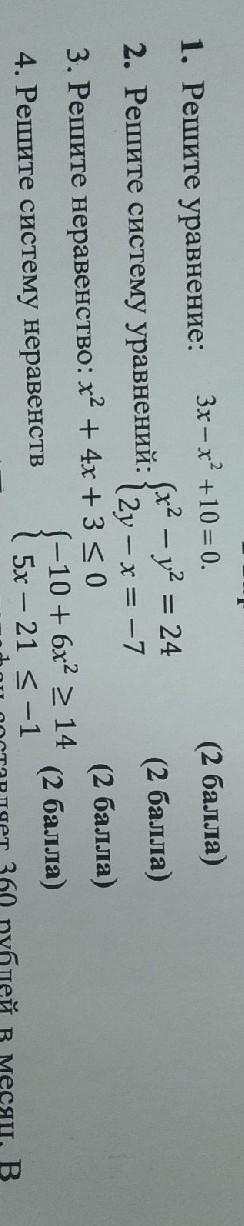 1. Решите уравнение: 3x − x² + 10 = 0. (2 балла)
2. Решите систему уравнений: {x² − y² = 24 (2 балла)
2y − x = −7
3. Решите неравенство: x² + 4x + 3 ≤ 0 (2 балла)
4. Решите систему неравенств {−10 + 6x² ≥ 14 (2 балла)
5x − 21 ≤ −1
составляет 360 рублей в месяц. В